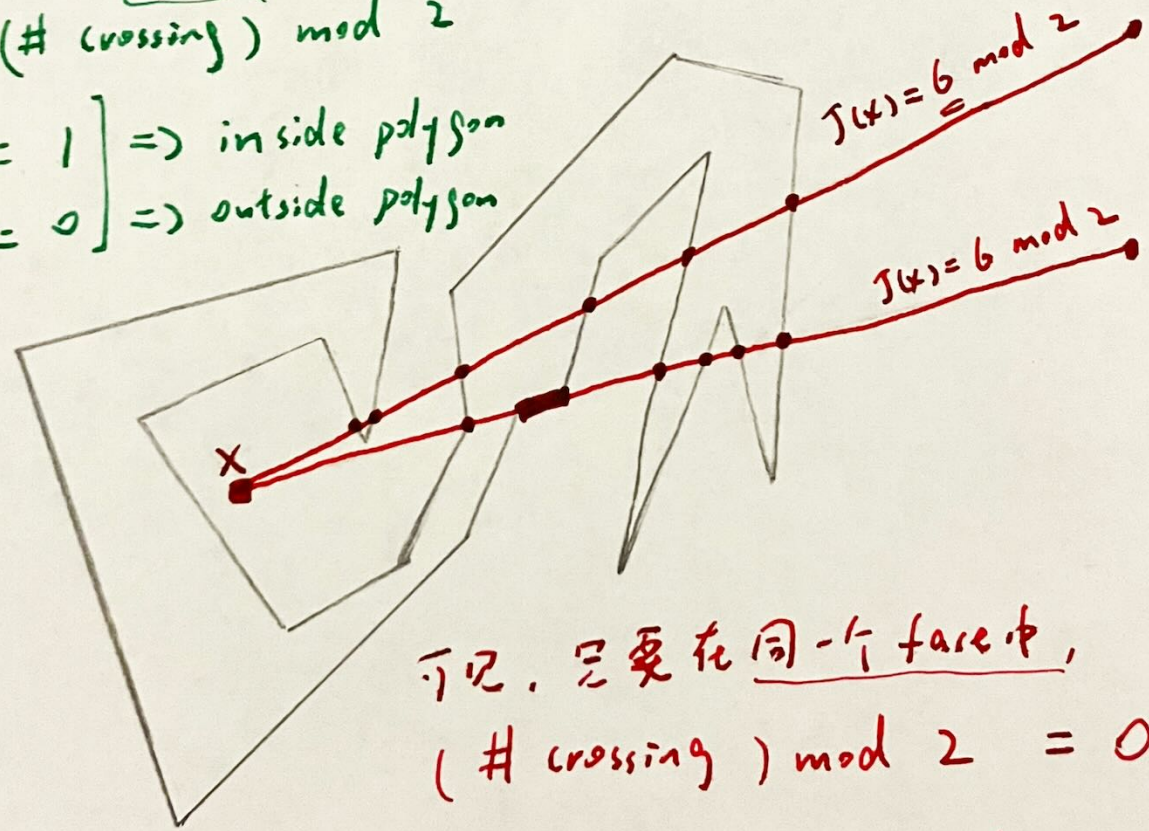 (# crossing) mod 2
= 1 ] => inside polygon
= 0 ] => outside polygon
J(x) = 6 mod 2
J(x) = 6 mod 2
X
可见，只要在同一个 face 中，
(# crossing) mod 2 = 0